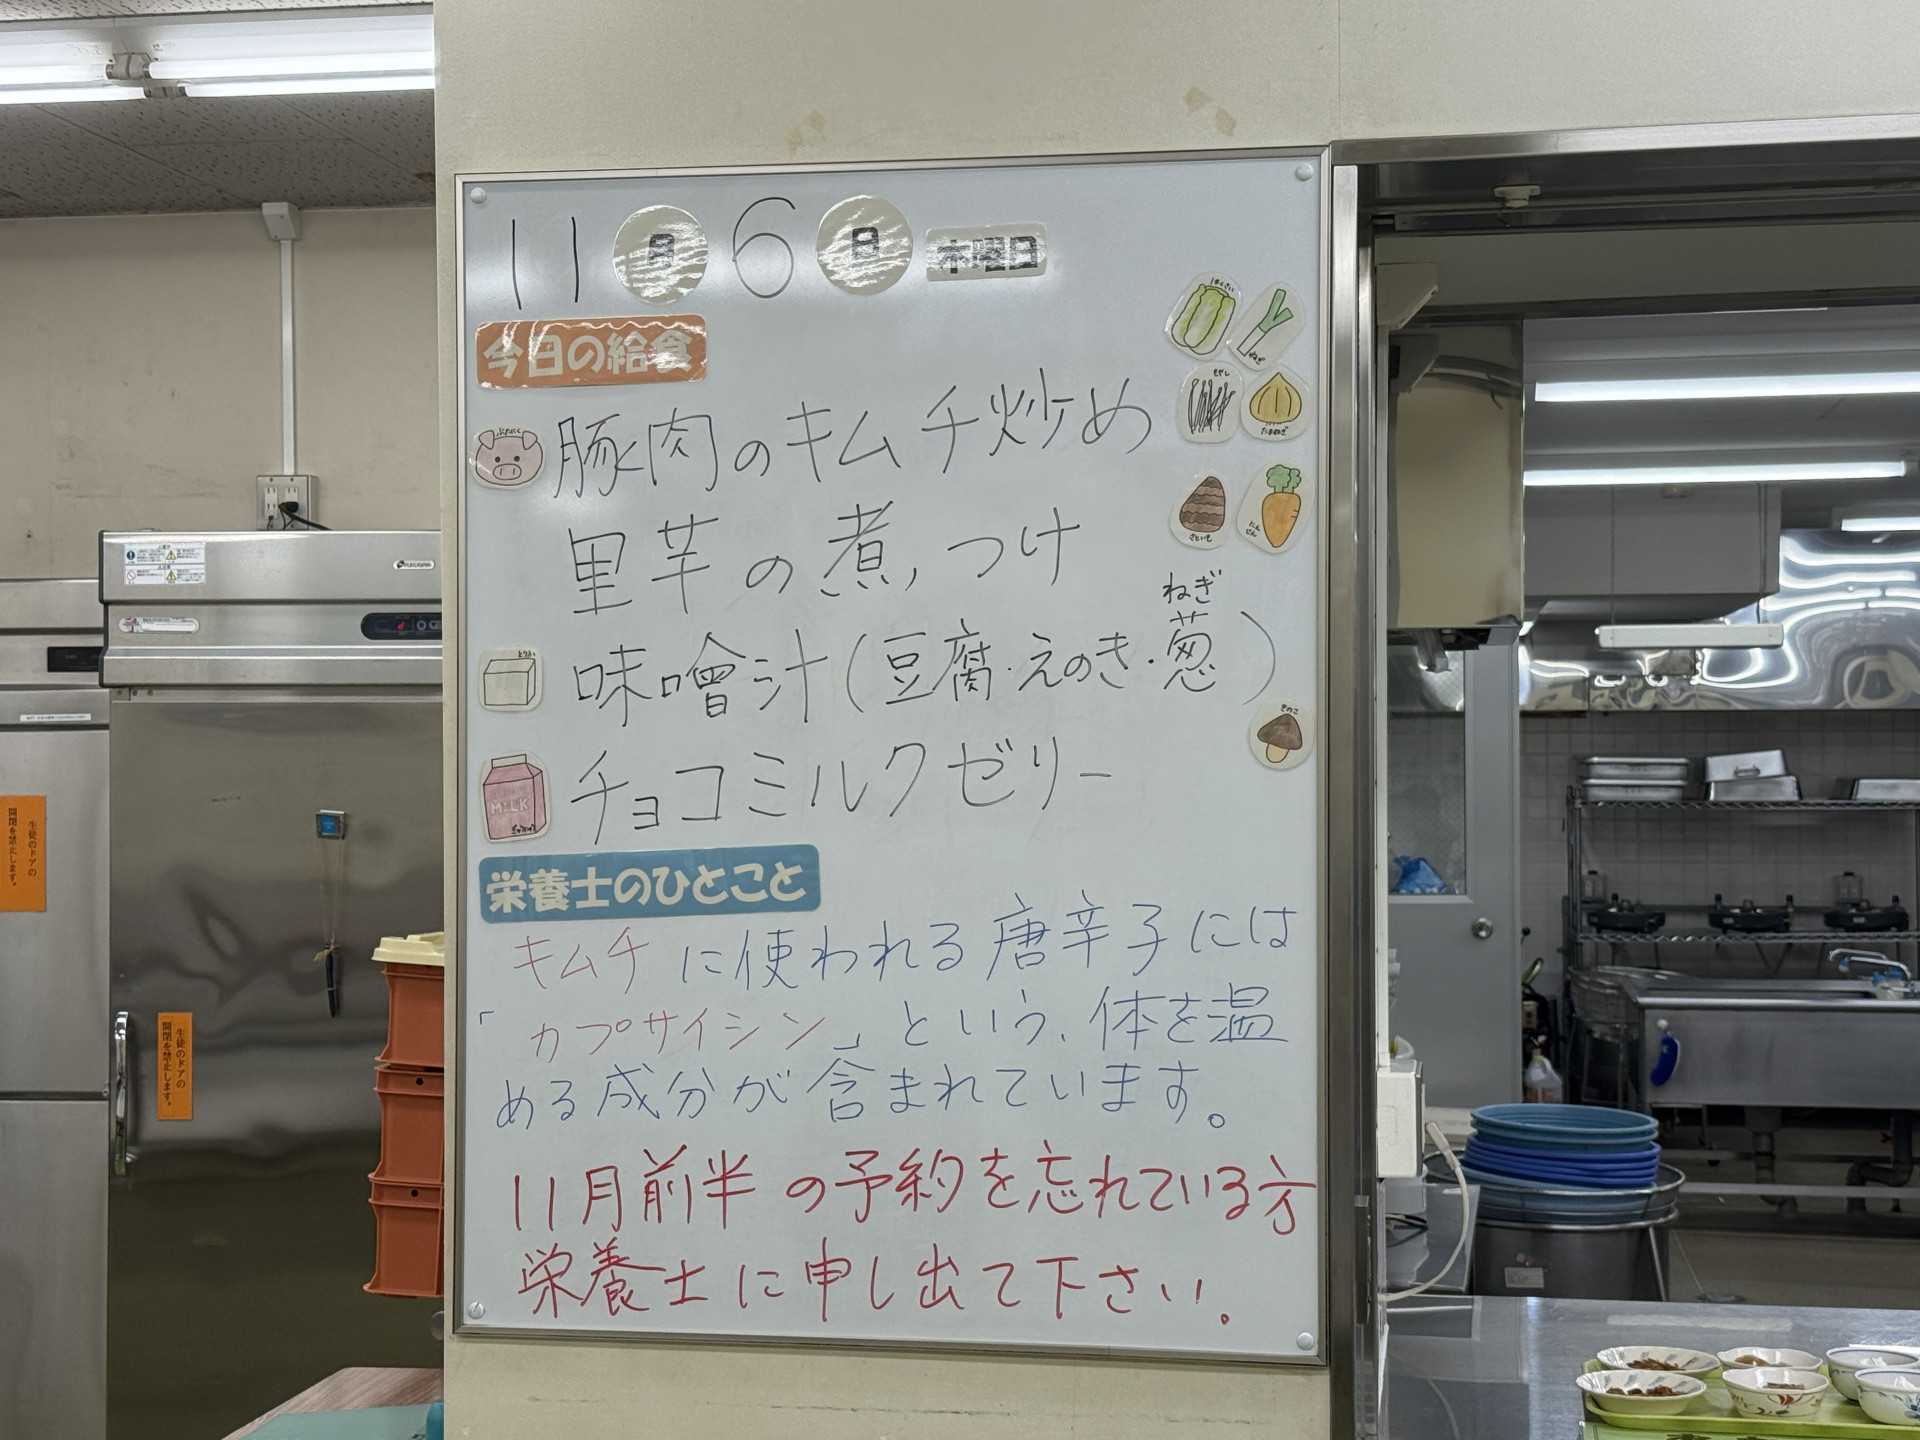 11月6日 木曜日
今日の給食
豚肉のキムチ炒め
里芋の煮つけ
ねぎ
味噌汁(豆腐・えのき・葱)
チョコミルクゼリー
はくさい
ねぎ
もやし
たまねぎ
さといも
にんじん
きのこ
とうふ
MILK
栄養士のひとこと
キムチに使われる唐辛子には
「カプサイシン」という、体を温
める成分が含まれています。
11月前半の予約を忘れている方
栄養士に申し出て下さい。
生徒のドアの
開閉を禁止します。
生徒のドアの
開閉を禁止します。
FUKUSHIMA